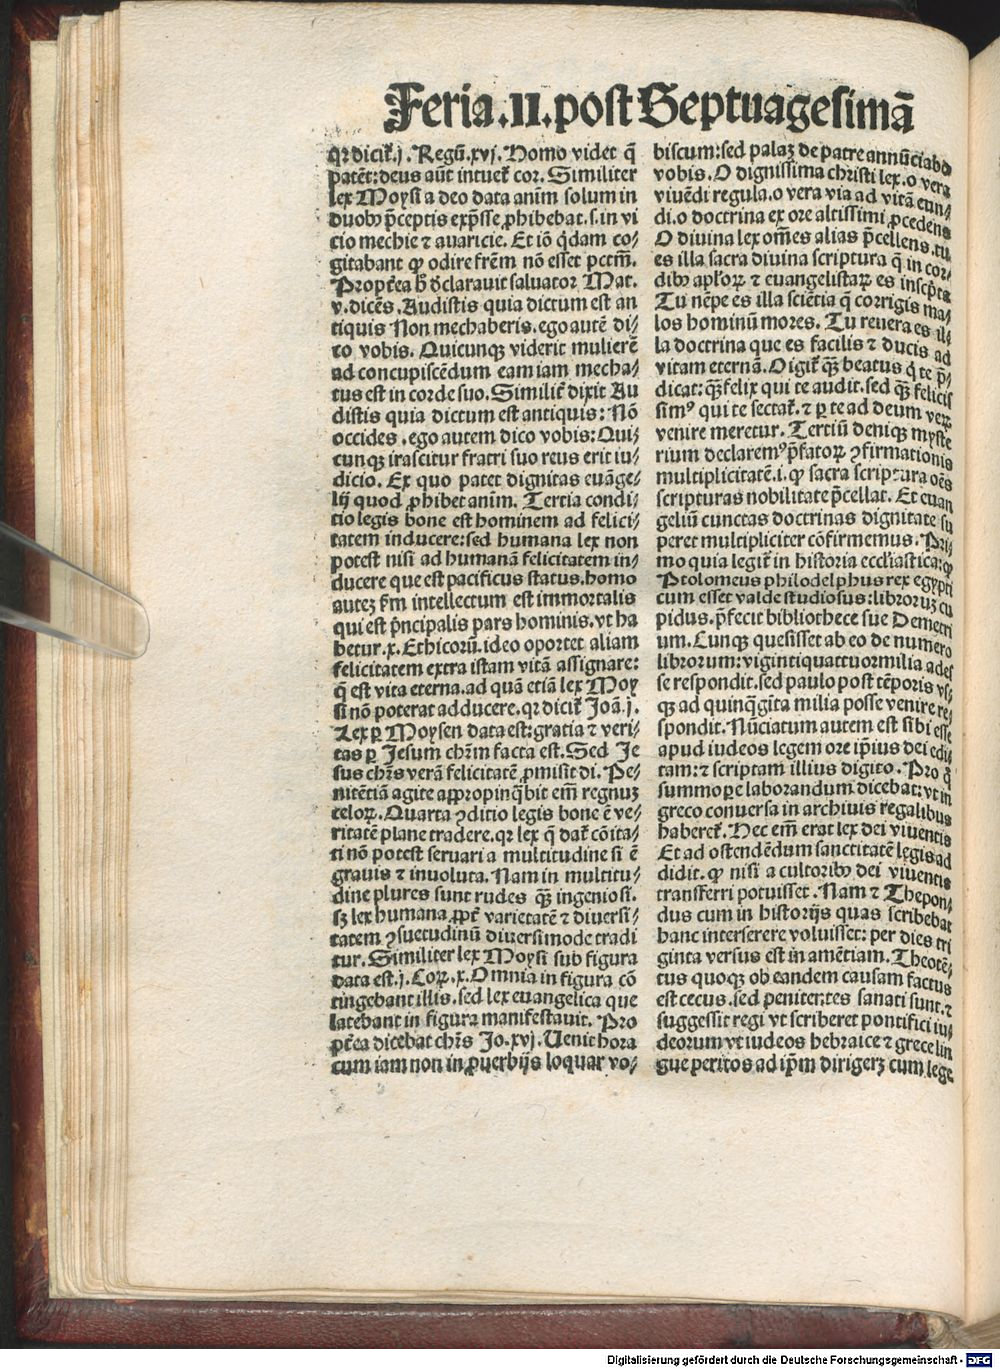 Feria.II.post Septuagesimā
qꝛ dicit᷑.j. Regū.xvj. Homo videt q̄
patēt:deus aūt intuet᷑ cor. Similiter
lex Moysi a deo data anim̄ solum in
duobꝰ p̄ceptis exp̄sse ꝓhibebat.s.in vi
cio mechie ⁊ auaricie. Et iō q̇dam co⸗
gitabant ꝙ odire frēm nō esset pctm̄.
Propt̄ea h̄ d̄clarauit saluator Mat.
v.dicēs. Audistis quia dictum est an
tiquis Non mechaberis.ego autē di⸗
co vobis. Quicunqꝫ viderit mulierē
ad concupiscēdum eam iam mecha⸗
tus est in corde suo. Similit᷑ dixit Au
distis quia dictum est antiquis: Nō
occides.ego autem dico vobis: Qui⸗
cunqꝫ irascitur fratri suo reus erit iu⸗
dicio. Ex quo patet dignitas euāge⸗
lij quod ꝓhibet anim̄. Tertia condi⸗
tio legis bone est hominem ad felici⸗
tatem inducere: sed humana lex non
potest nisi ad humanā felicitatem in⸗
ducere que est pacificus status.homo
autēꝫ fm̄ intellectum est immortalis
qui est p̄ncipalis pars hominis.vt ha
betur.x. Ethicorū.ideo oportet aliam
felicitatem extra istam vitā assignare:
q̄ est vita eterna.ad quā etiā lex Moy
si nō poterat adducere.qꝛ dicit᷑ Joā.j.
Lex ꝑ Moysen data est:gratia ⁊ veri⸗
tas ꝑ Jesum chr̄m facta est. Sed Je
sus chr̄s verā felicitatē ꝓmisit di. Pe⸗
nitētiā agite appropinq̄bit em̄ regnuꝫ
celoꝝ. Quarta ꝯditio legis bone ē ve⸗
ritatē plane tradere.qꝛ lex q̄ dat᷑ cōita⸗
ti nō potest seruari a multitudine si ē
grauis ⁊ inuoluta. Nam in multitu⸗
dine plures sunt rudes qꝫ̄ ingeniosi.
sꝫ lex humana ꝓpt᷑ varietatē ⁊ diuersi⸗
tatem ꝯsuetudinū diuersimode tradi
tur. Similiter lex Moysi sub figura
data est.j. Coꝝ.x. Omnia in figura cō
tingebant illis. sed lex euangelica que
latebant in figura manifestauit. Pro
pt̄ea dicebat chr̄s Jo.xvj. Uenit hora
cum iam non in ꝓuerbijs loquar vo⸗
biscum:sed palaꝫ de patre annūciabo
vobis. O dignissima christi lex.o vera
viuēdi regula.o vera via ad vitā eun⸗
di.o doctrina ex ore altissimi ꝓcedens
O divina lex om̄es alias p̄cellens.tu
es illa sacra divina scriptura q̄ in cor⸗
dibꝰ ap̄loꝝ ⁊ euangelistaꝝ es inscp̄ta
Tu nēpe es illa sciētia q̄ corrigis ma⸗
los hominū mores. Tu reuera es il⸗
la doctrina que es facilis ⁊ ducis ad
vitam eternā. O igit᷑ qꝫ̄ beatus q̇ te p̄⸗
dicat:qꝫ̄ felix qui te audit.sed qꝫ̄ felicis
simꝰ qui te sectat᷑.⁊ ꝑ te ad deum veꝝ
venire meretur. Tertiū deniqꝫ myste
rium declaremꝰ p̄fatoꝝ ꝯfirmationis
multiplicitatē.i.ꝙ sacra scriptura oēs
scripturas nobilitate p̄cellat. Et euan
geliū cunctas doctrinas dignitate su
peret multipliciter cōfirmemus. Pri⸗
mo quia legit᷑ in historia eccl̄iastica:ꝙ
Ptolomeus philodelphus rex egypti
cum esset valde studiosus:libroruꝫ cu
pidus.p̄fecit bibliothece sue Demetri
um. Cunqꝫ quesisset ab eo de numero
librorum:vigintiquattuormilia ades
se respondit.sed paulo post tēporis vs⸗
qꝫ ad quinq̄gīta milia posse venire re⸗
spondit. Nūciatum autem est sibi esse
apud iudeos legem ore ip̄ius dei edi⸗
tam:⁊ scriptam illius digito. Pro q̄
summope laborandum dicebat:vt in
greco conuersa in archiuis regalibus
haberet᷑. Hec em̄ erat lex dei viuentis
Et ad ostendēdum sanctitatē legis ad
didit.ꝙ nisi a cultoribꝰ dei viuentis
transferri potuisset. Nam ⁊ Thepon⸗
dus cum in historijs quas scribebat
hanc interserere voluisset: per dies tri
ginta versus est in amētiam. Theotē⸗
tus quoqꝫ ob eandem causam factus
est cecus.sed penitentes sanati sunt.⁊
suggessit regi vt scriberet pontifici iu⸗
deorum vt iudeos hebraice ⁊ grece lin
gue peritos ad ip̄m dirigerꝫ cum lege
Digitalisierung gefördert durch die Deutsche Forschungsgemeinschaft - DFG